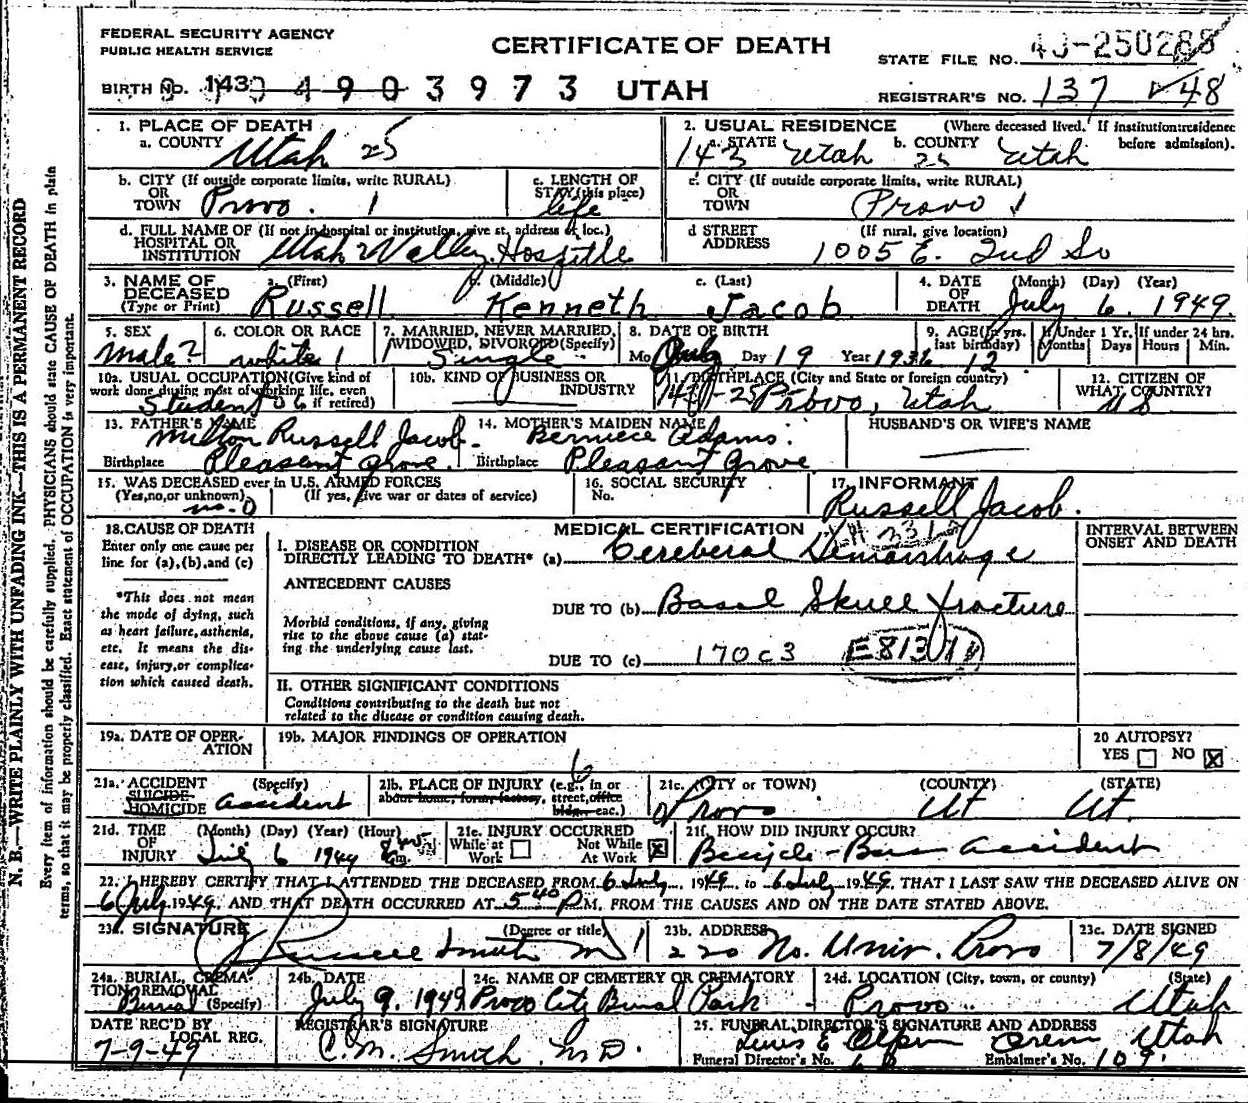 FEDERAL SECURITY AGENCY
PUBLIC HEALTH SERVICE
CERTIFICATE OF DEATH
STATE FILE NO.
BIRTH NO. 143 4903973 UTAH
REGISTRAR'S NO. 137 48
1. PLACE OF DEATH
a. COUNTY Utah 25
2. USUAL RESIDENCE (Where deceased lived. If institution: residence before admission).
a. STATE 143 Utah b. COUNTY 25 Utah
b. CITY (If outside corporate limits, write RURAL)
OR
TOWN Provo. 1
c. LENGTH OF
STAY (this place)
life
c. CITY (If outside corporate limits, write RURAL)
OR
TOWN Provo 1
d. FULL NAME OF (If not in hospital or institution, give st. address or loc.)
HOSPITAL OR
INSTITUTION Utah Valley Hospitle
d STREET (If rural, give location)
ADDRESS 1005 E. 2nd So
3. NAME OF
DECEASED
(Type or Print)
a. (First) (Middle) c. (Last)
Russell Kenneth Jacob
4. DATE (Month) (Day) (Year)
OF
DEATH July 6 1949.
5. SEX
male 2
6. COLOR OR RACE
white 1
7. MARRIED, NEVER MARRIED,
WIDOWED, DIVORCED (Specify)
1 Single
8. DATE OF BIRTH
Mo July Day 19 Year 1936
9. AGE (In yrs.
last birthday)
12
If Under 1 Yr. If under 24 hrs.
Months Days Hours Min.
10a. USUAL OCCUPATION (Give kind of
work done during most of working life, even
if retired)
Student
10b. KIND OF BUSINESS OR
INDUSTRY
11. BIRTHPLACE (City and State or foreign country)
Provo, Utah
12. CITIZEN OF
WHAT COUNTRY?
US
13. FATHER'S NAME
Milton Russell Jacob.
Birthplace Pleasant Grove.
14. MOTHER'S MAIDEN NAME
Berniece Adams.
Birthplace Pleasant Grove
HUSBAND'S OR WIFE'S NAME
15. WAS DECEASED ever in U.S. ARMED FORCES
(Yes, no, or unknown) (If yes, give war or dates of service)
no. 0
16. SOCIAL SECURITY
No.
17. INFORMANT
Russell Jacob.
18. CAUSE OF DEATH
Enter only one cause per
line for (a), (b), and (c)
*This does not mean
the mode of dying, such
as heart failure, asthenia,
etc. It means the dis-
ease, injury, or complica-
tion which caused death.
MEDICAL CERTIFICATION
INTERVAL BETWEEN
ONSET AND DEATH
I. DISEASE OR CONDITION
DIRECTLY LEADING TO DEATH* (a) Cereberal Hemorrhage
ANTECEDENT CAUSES
DUE TO (b) Basal Skull fracture
Morbid conditions, if any, giving
rise to the above cause (a) stat-
ing the underlying cause last.
DUE TO (c) 170c3
II. OTHER SIGNIFICANT CONDITIONS
Conditions contributing to the death but not
related to the disease or condition causing death.
19a. DATE OF OPER-
ATION
19b. MAJOR FINDINGS OF OPERATION
20 AUTOPSY?
YES NO X
21a. ACCIDENT (Specify)
SUICIDE
HOMICIDE accident
21b. PLACE OF INJURY (e.g., in or
about home, farm, factory, street, office
bldg., etc.)
6
21c. (CITY or TOWN) (COUNTY) (STATE)
Provo Ut Ut.
21d. TIME (Month) (Day) (Year) (Hour)
OF
INJURY July 6 1949
21e. INJURY OCCURRED
While at Not While
Work At Work X
21f. HOW DID INJURY OCCUR?
Bicycle-Bus accident
22. I HEREBY CERTIFY THAT I ATTENDED THE DECEASED FROM 6 July, 1949, to 6 July 1949, THAT I LAST SAW THE DECEASED ALIVE ON
6 July 1949, AND THAT DEATH OCCURRED AT 5:40 P M. FROM THE CAUSES AND ON THE DATE STATED ABOVE.
23a SIGNATURE (Degree or title)
Russell Smith
23b. ADDRESS
220 No. Univ. Provo
23c. DATE SIGNED
7/8/49
24a. BURIAL, CREMA-
TION REMOVAL
(Specify)
Burial
24b. DATE
July 9. 1949
24c. NAME OF CEMETERY OR CREMATORY
Provo City Burial Park
24d. LOCATION (City, town, or county) (State)
Provo Utah
DATE REC'D BY
LOCAL REG.
7-9-49
REGISTRAR'S SIGNATURE
C. M. Smith. MD.
25. FUNERAL DIRECTOR'S SIGNATURE AND ADDRESS
Orem Utah
Funeral Director's No. Embalmer's No. 109
N. B.—WRITE PLAINLY WITH UNFADING INK—THIS IS A PERMANENT RECORD
Every item of information should be carefully supplied. PHYSICIANS should state CAUSE OF DEATH in plain
terms, so that it may be properly classified. Exact statement of OCCUPATION is very important.